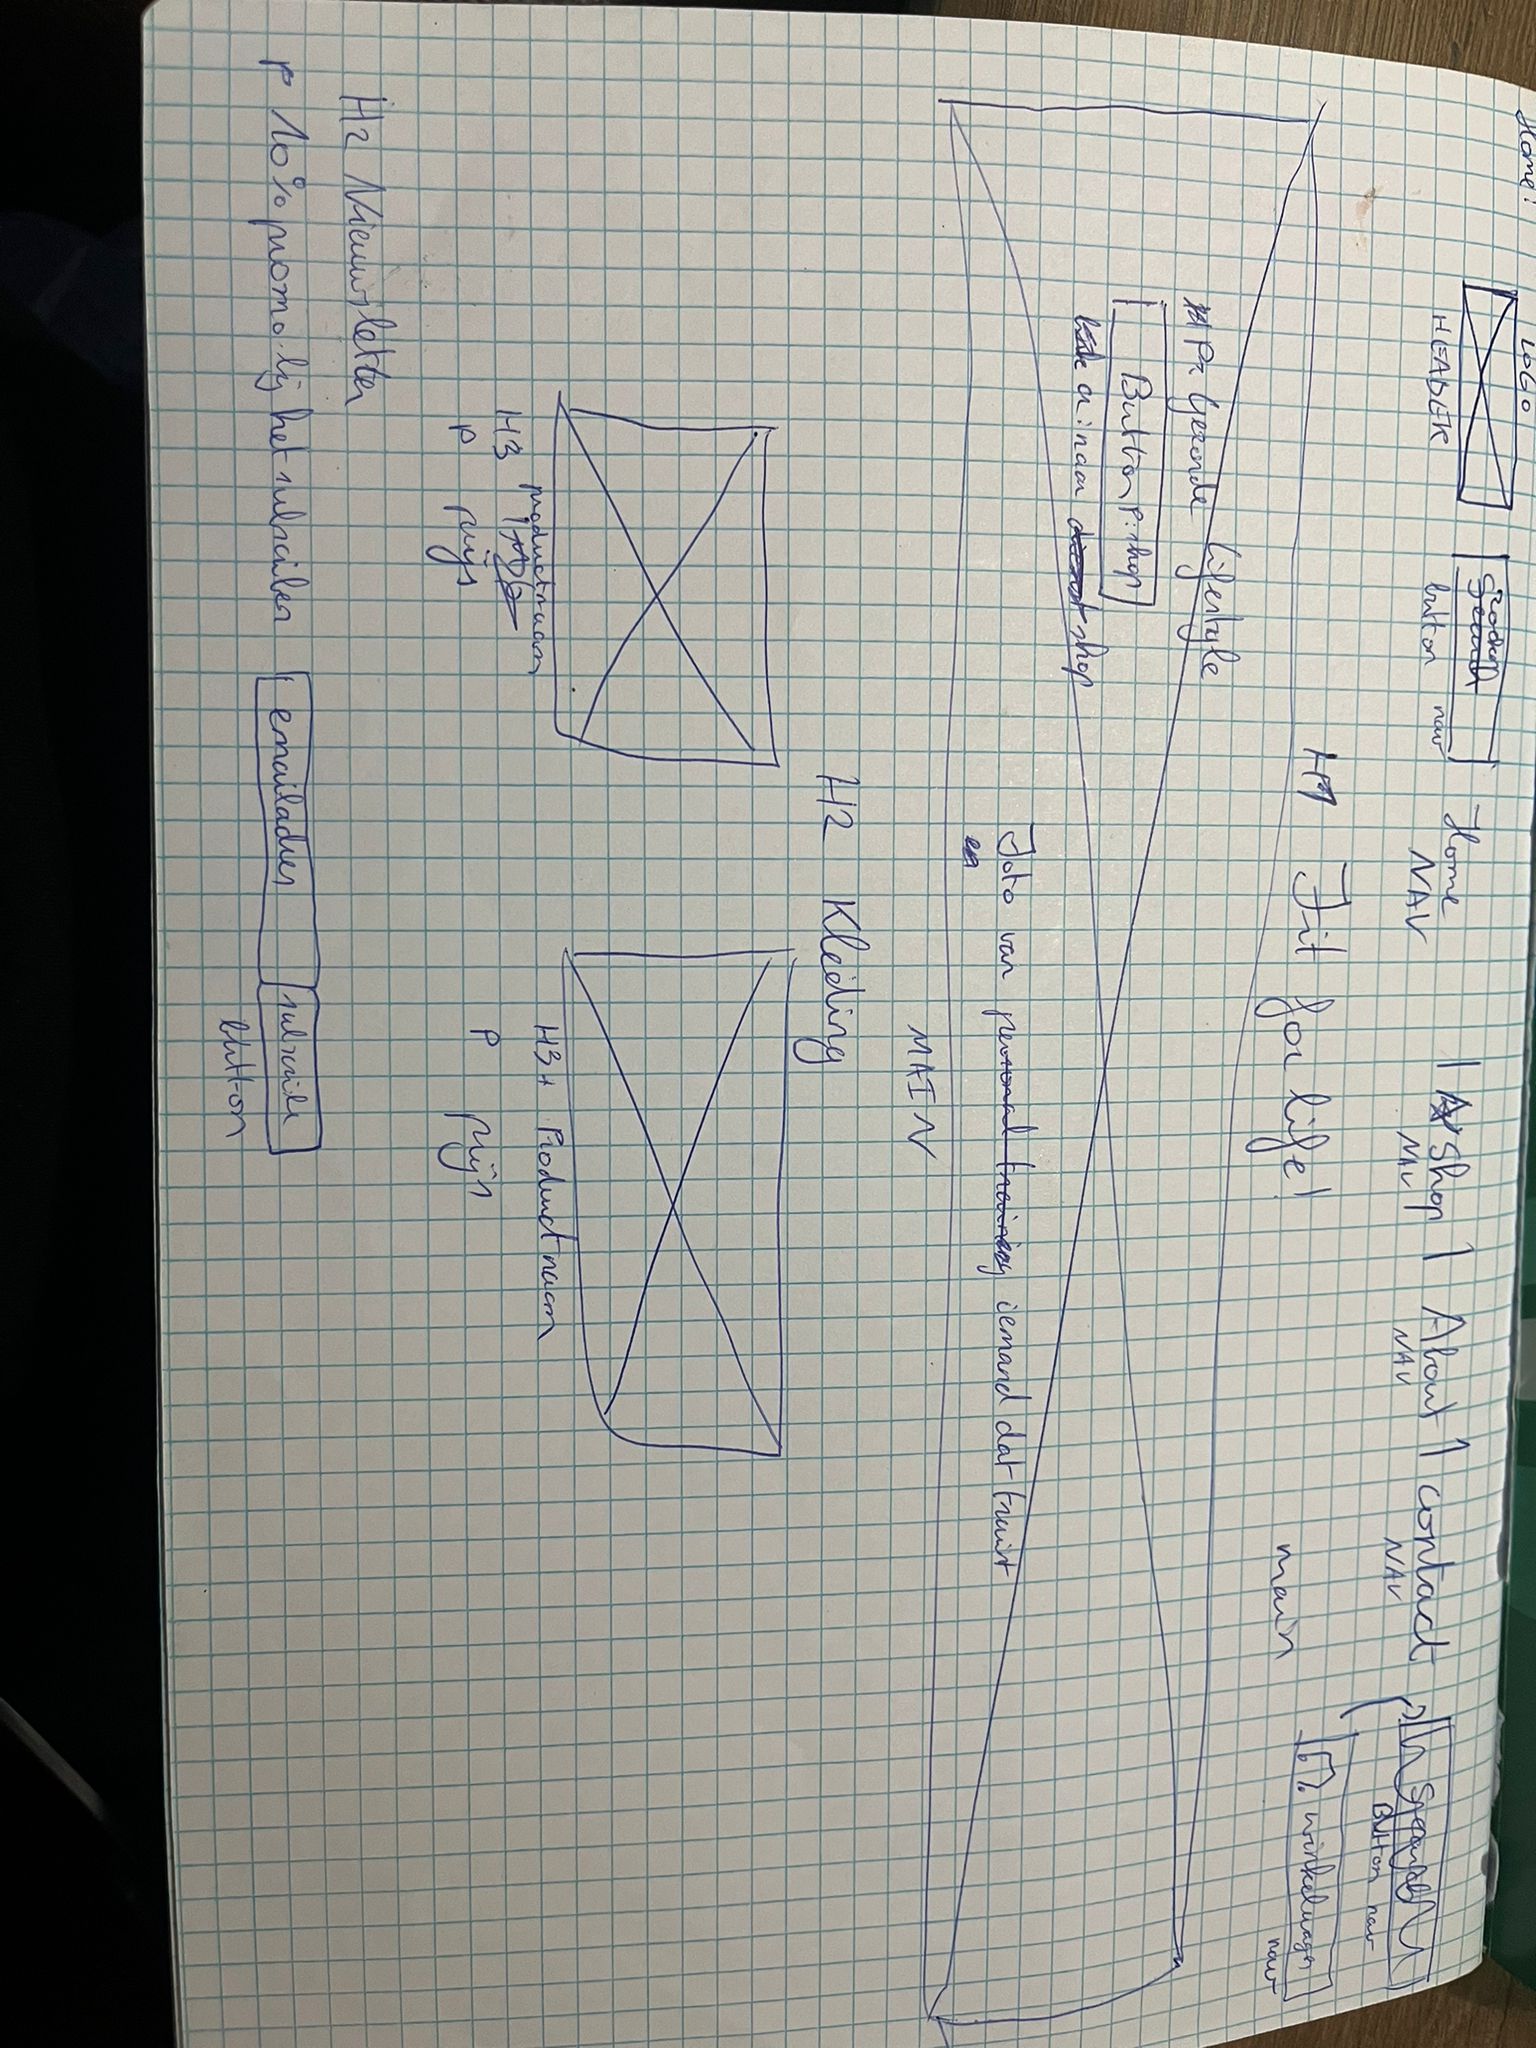 Home:
LOGO
HEADER
zoeken
button nav
Home
NAV
| Shop | About | contact
NAV NAV NAV
Button nav
winkelwagen
nav
H1 Fit for life!
main
P: Gezonde lifestyle
Button P: shop
a: naar shop
Foto van personal training iemand dat traint
en
MAIN
H2 Kleding
productnaam
H3
P prijs
H3+ Productnaam
P prijs
H2 Nieuwsletter
P 10% promo bij het subscriben
emailadres
subscribe
button